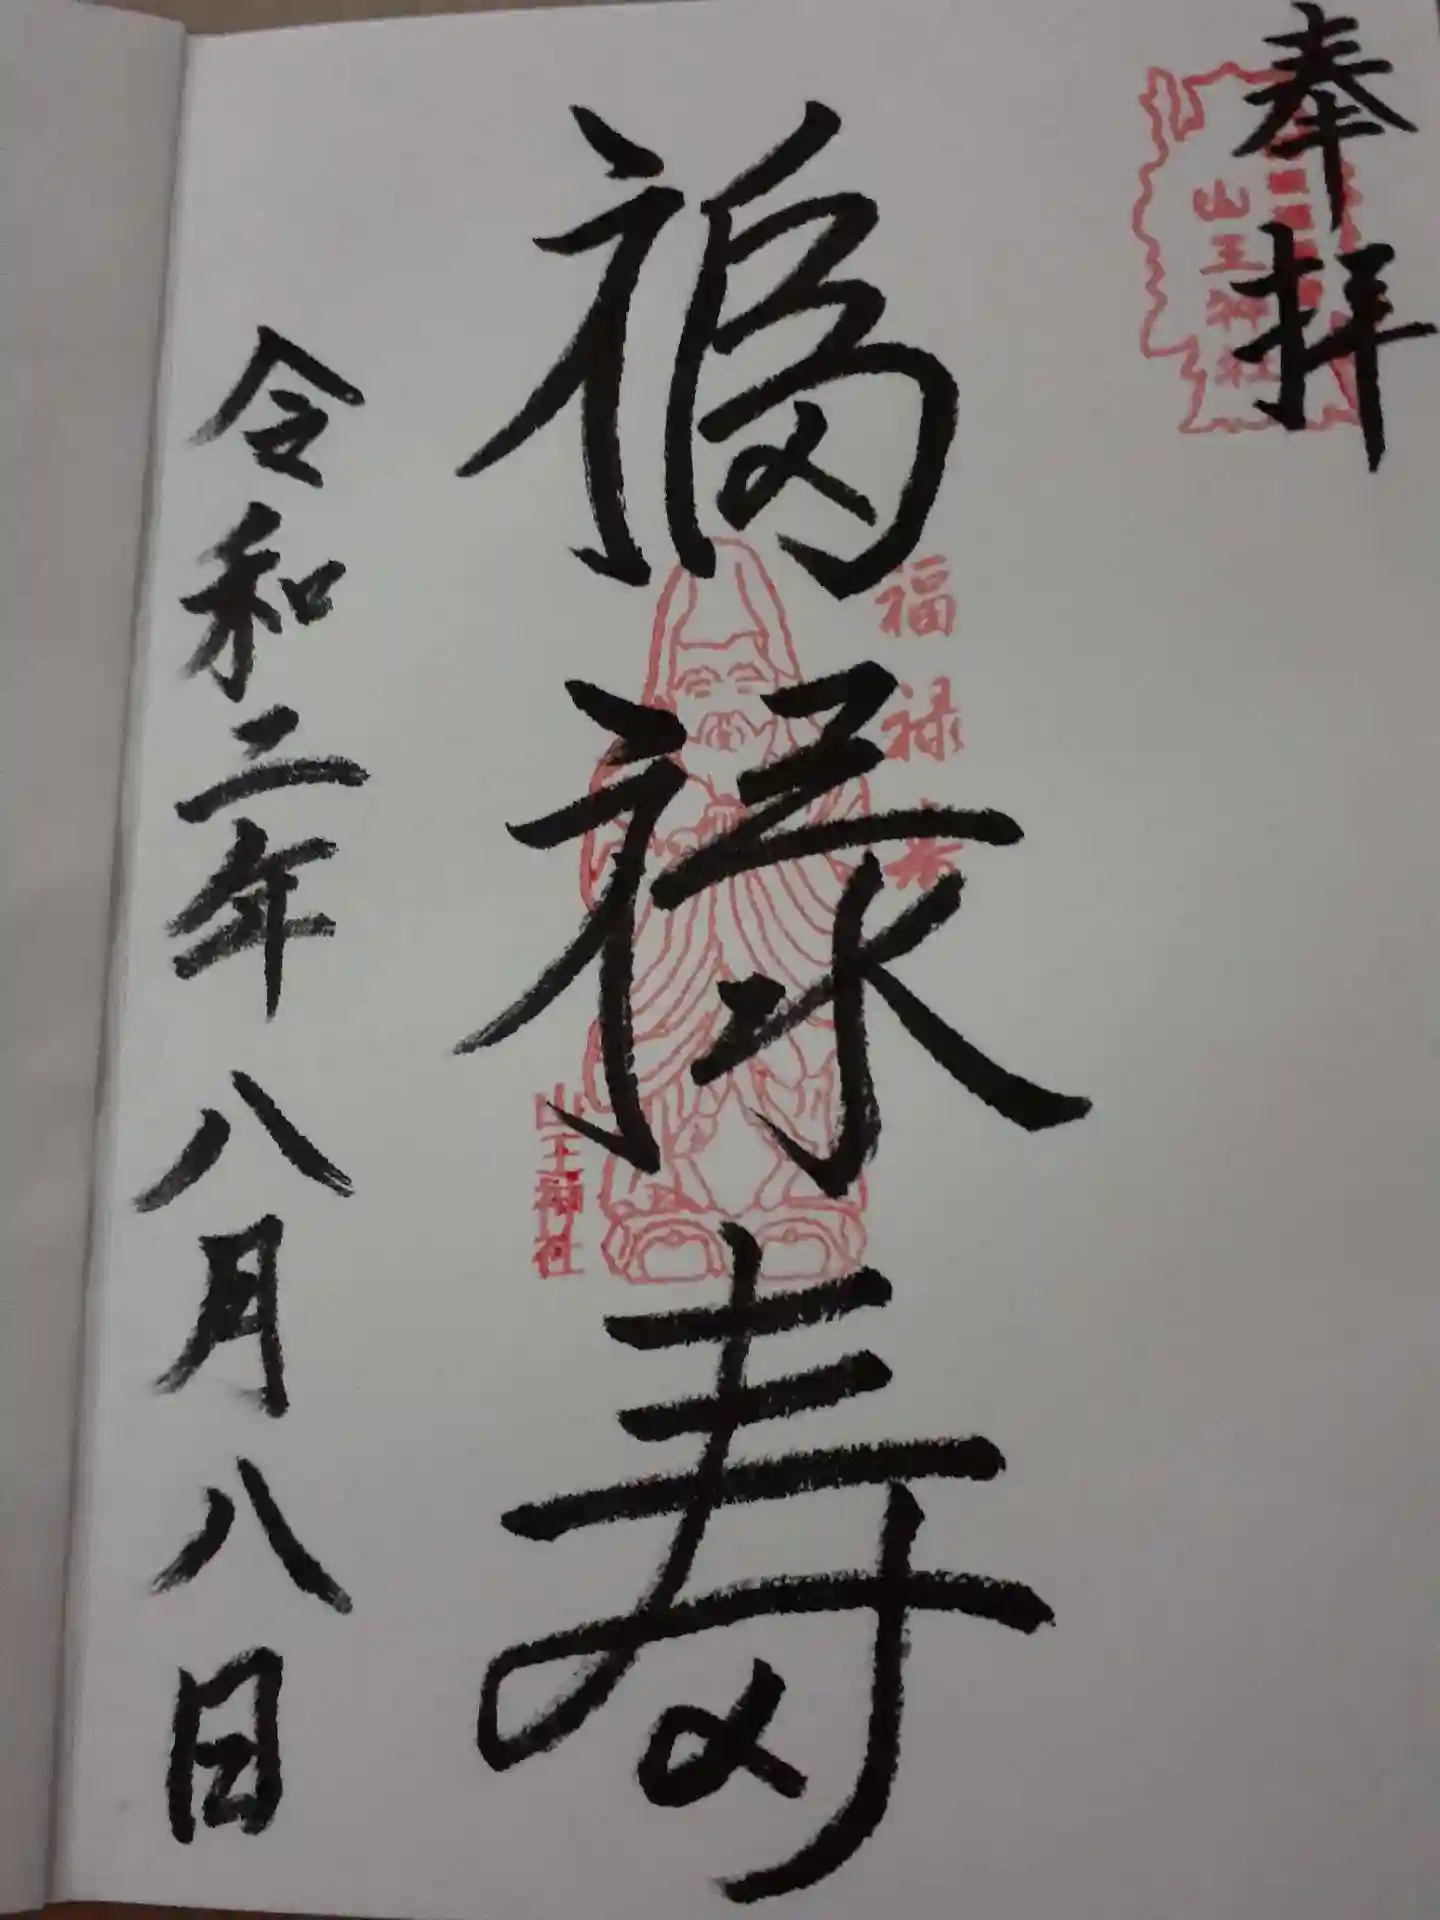 奉拝
山王神社
福禄寿
福禄寿
山王神社
令和二年八月八日